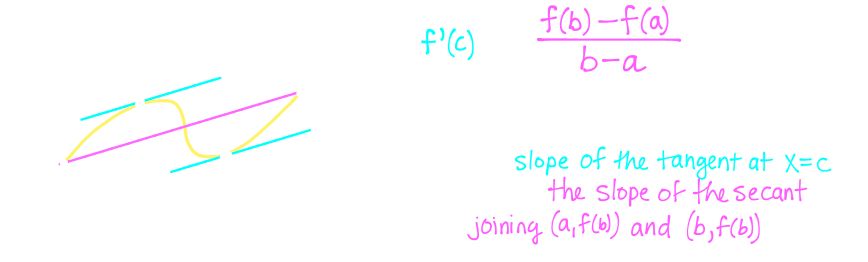 f'(c)
f(b)-f(a)
b-a
slope of the tangent at x=c
the slope of the secant
joining (a,f(b)) and (b,f(b))